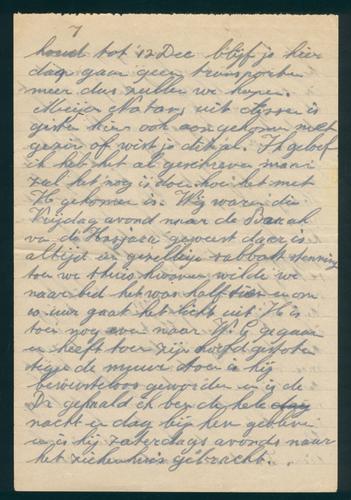 7
houd tot 12 Dec blijf je hier
dan gaan geen transporten
meer dus zullen we hopen.
Meijer Natans uit Assen is
gisten hier ook aangekomen met
gezin of wist je dit al. Ik geloof
ik heb het al geschreven maar
zal het nog is doen hoe het met
Ko gekomen is. Wij waren die
Vrijdag avond naar de Barak
van de Hasjara geweest daar is
altijd en gezellige sabbath stemming
toen we thuis kwamen wilde we
naar bed het was half tien en om
10 uur gaat het licht uit Ko is
toen nog even naar W.G gegaan
en heeft toen zijn hoofd gestoten
tegen de muur toen is hij
bewusteloos geworden en is de
Dr gehaald ik ben de hele dag
nacht en dag bij hem gebleven
en is hij zaterdags avonds naar
het ziekenhuis gebracht...